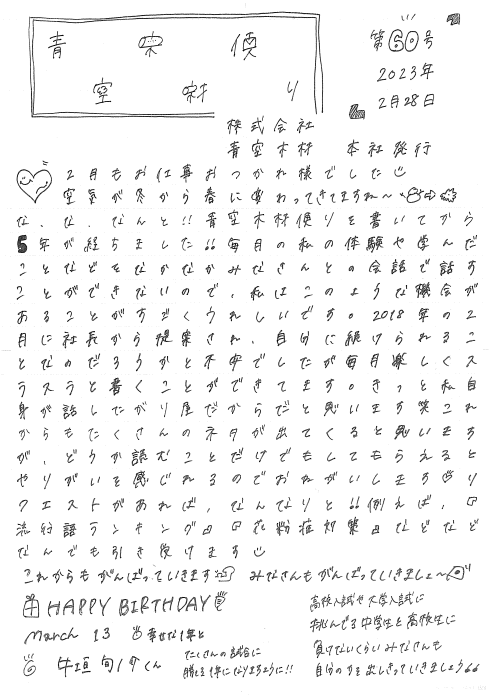 青空木材便り
第60号
2023年
2月28日
株式会社
青空木材 本社発行
2月もお仕事おつかれ様でした
空気が冬から春に変わってきてますね〜
な、な、なんと!!青空木材便りを書いてから
5年が経ちました!!毎月の私の体験や学んだ
ことなどをなかなかみなさんとの会話で話す
ことができないので、私はこのような機会が
あることがすごくうれしいです。2018年の2
月に社長から提案され、自分に続けられるこ
となのだろうかと不安でしたが毎月楽しくス
ラスラと書くことができてます。きっと私自
身が話したがり屋だからだと思います笑これ
からもたくさんのネタが出てくると思います
が、どうか読むことだけでもしてもらえると
やりがいを感じれるのでおねがいします リ
クエストがあれば、なんなりと!!例えば、『
流行語ランキング』『花粉症対策』などなど
なんでも引き受けます
これからもがんばっていきます みなさんもがんばっていきましょ〜
HAPPY BIRTHDAY
March 13 幸せな1年と
牛垣 旬汰くん
たくさんの試合に
勝てる1年になりますように!!
高校入試や大学入試に
挑んでる中学生と高校生に
負けないくらいみなさんも
自分の力を出しきっていきましょう